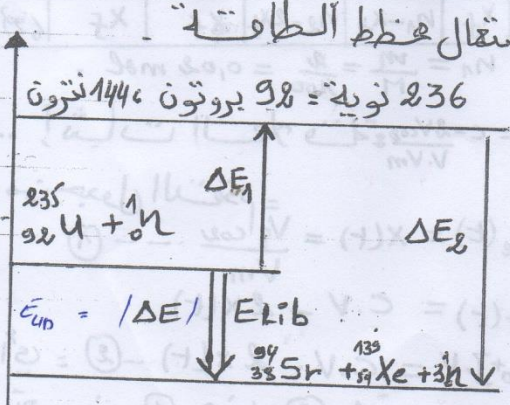 ستعمال مخطط الطاقة.
236 نوية = 92 بروتون و 144 نترون
ΔE₁
²³⁵₉₂U + ¹₀n
ΔE₂
E_Lib = |ΔE| E Lib
⁹⁴₃₈Sr + ¹³⁹₅₄Xe + 3¹₀n